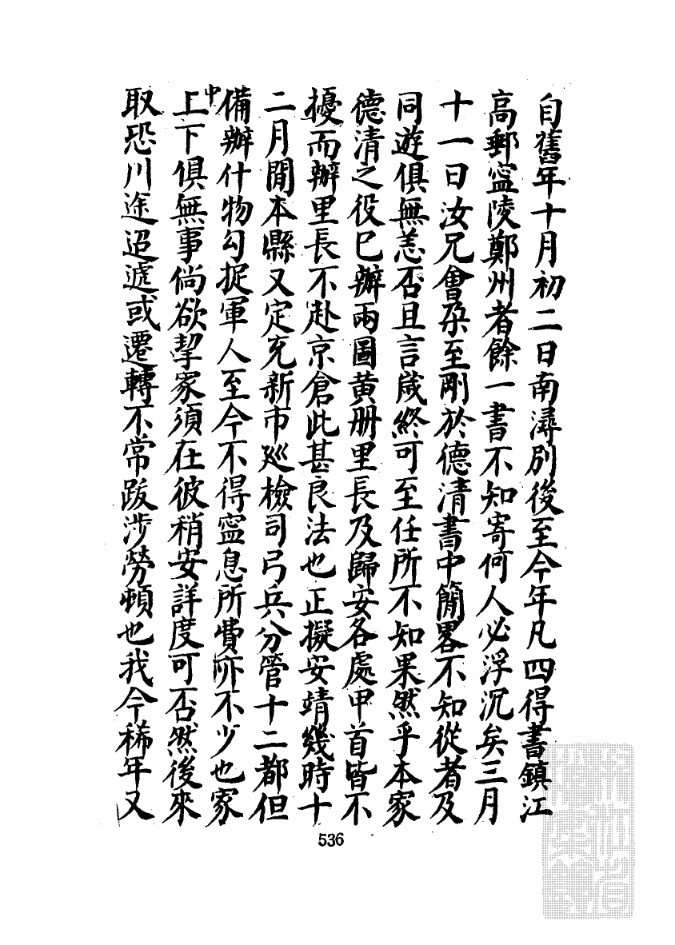 自舊年十月初二日南潯別後至今年凡四得書鎮江
高郵寧陵鄭州者餘一書不知寄何人必浮沉矣三月
十一日汝兄會朶至剛於德清書中簡畧不知從者及
同遊俱無恙否且言歲終可至任所不知果然乎本家
德清之役已辦兩圖黃册里長及歸安各處甲首皆不
擾而辦里長不赴京倉此甚良法也正擬安靖幾時十
二月間本縣又定充新市廵檢司弓兵分管十二都但
備辦什物勾捉軍人至今不得寧息所費亦不少也家
中上下俱無事尚欲挈家須在彼稍安詳度可否然後來
取恐川途迢遞或遷轉不常跋涉勞頓也我今稀年又
536